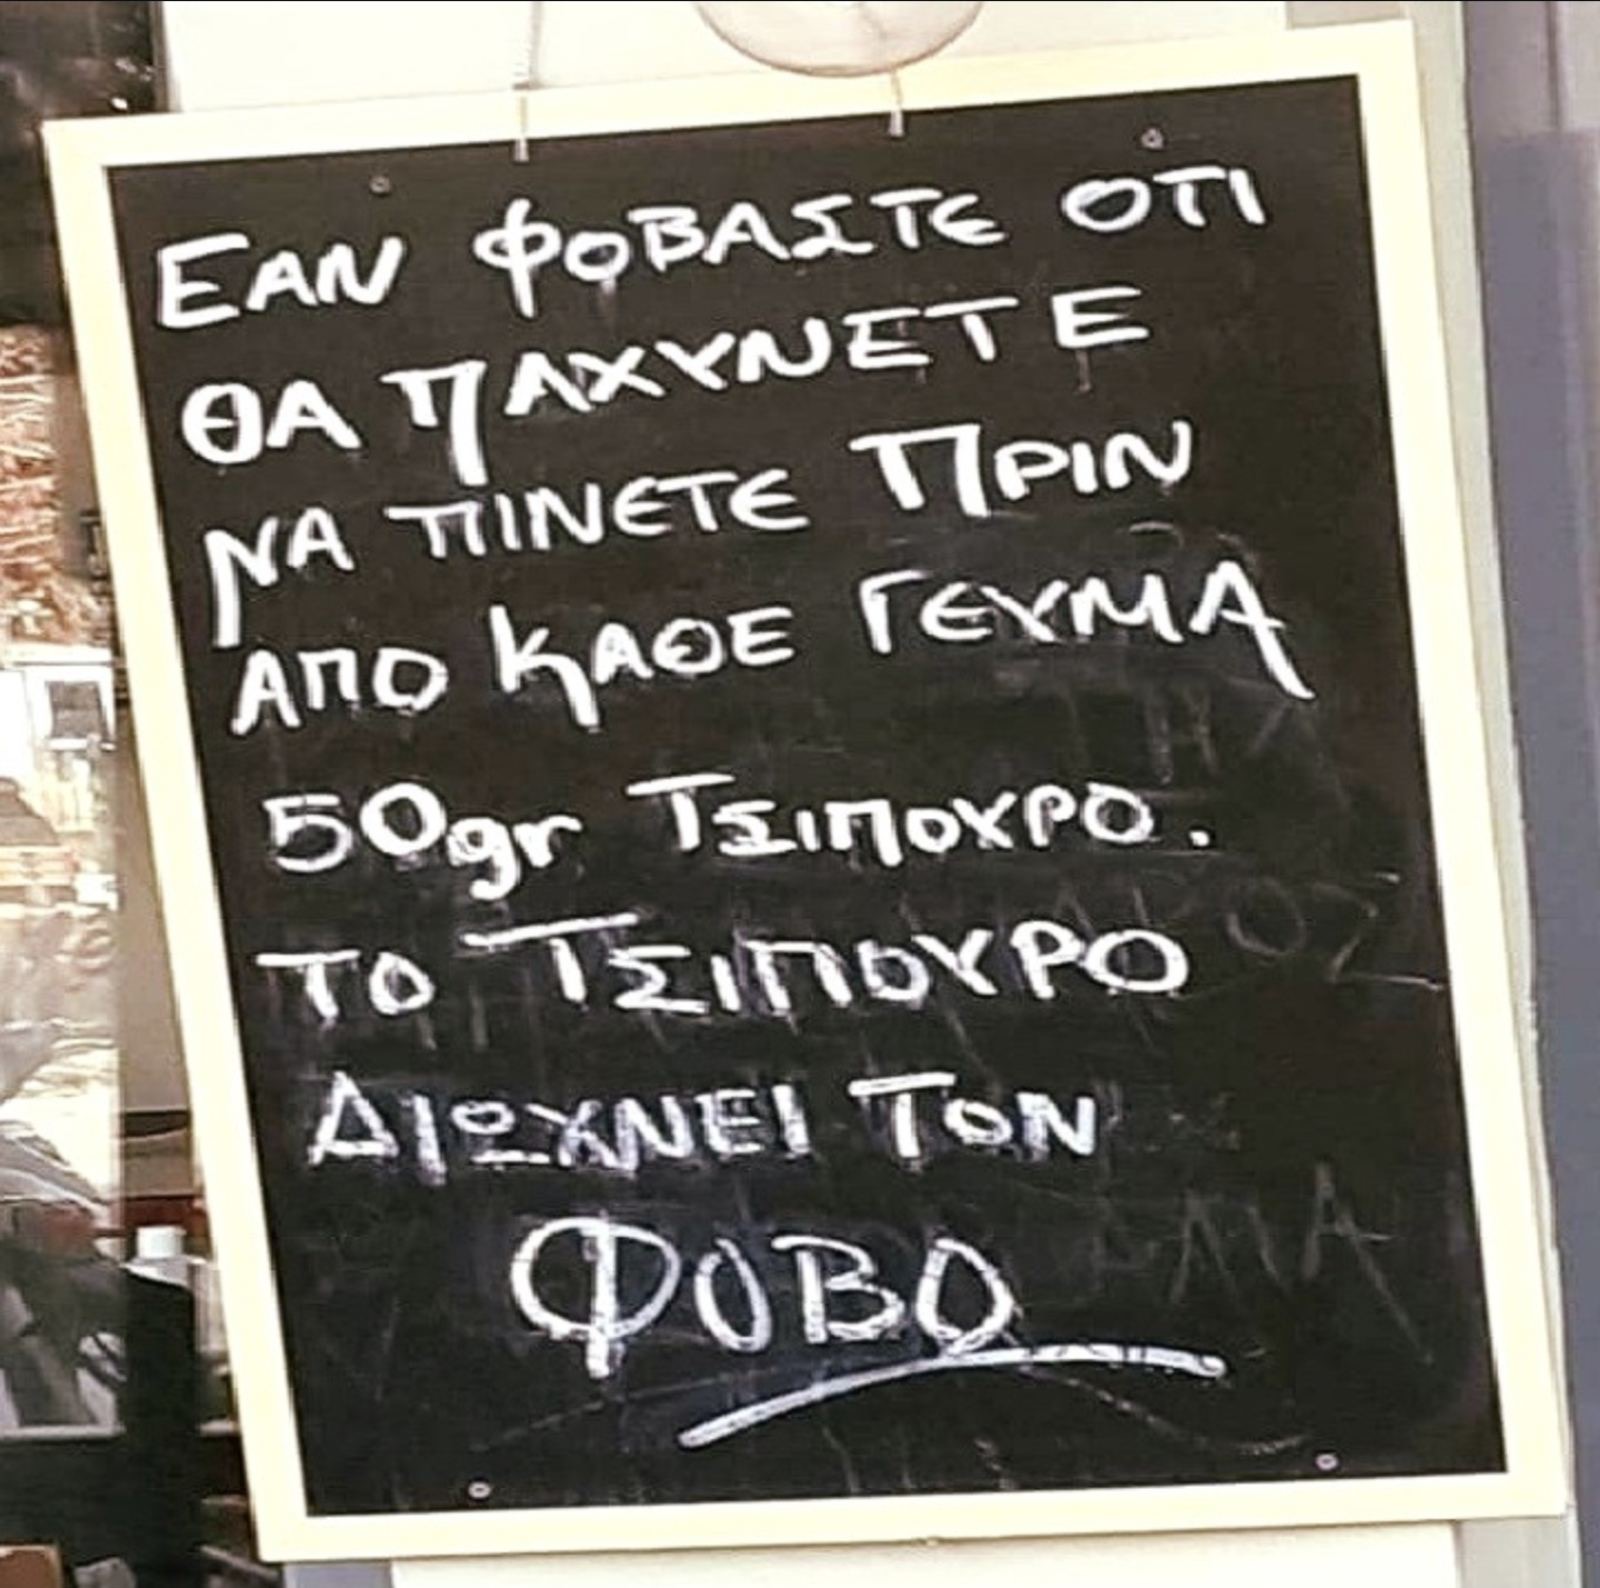 ΕΑΝ ΦΟΒΑΣΤΕ ΟΤΙ
ΘΑ ΠΑΧΥΝΕΤΕ
ΝΑ ΠΙΝΕΤΕ ΠΡΙΝ
ΑΠΟ ΚΑΘΕ ΓΕΥΜΑ
50gr ΤΣΙΠΟΥΡΟ.
ΤΟ ΤΣΙΠΟΥΡΟ
ΔΙΩΧΝΕΙ ΤΟΝ
ΦΟΒΟ